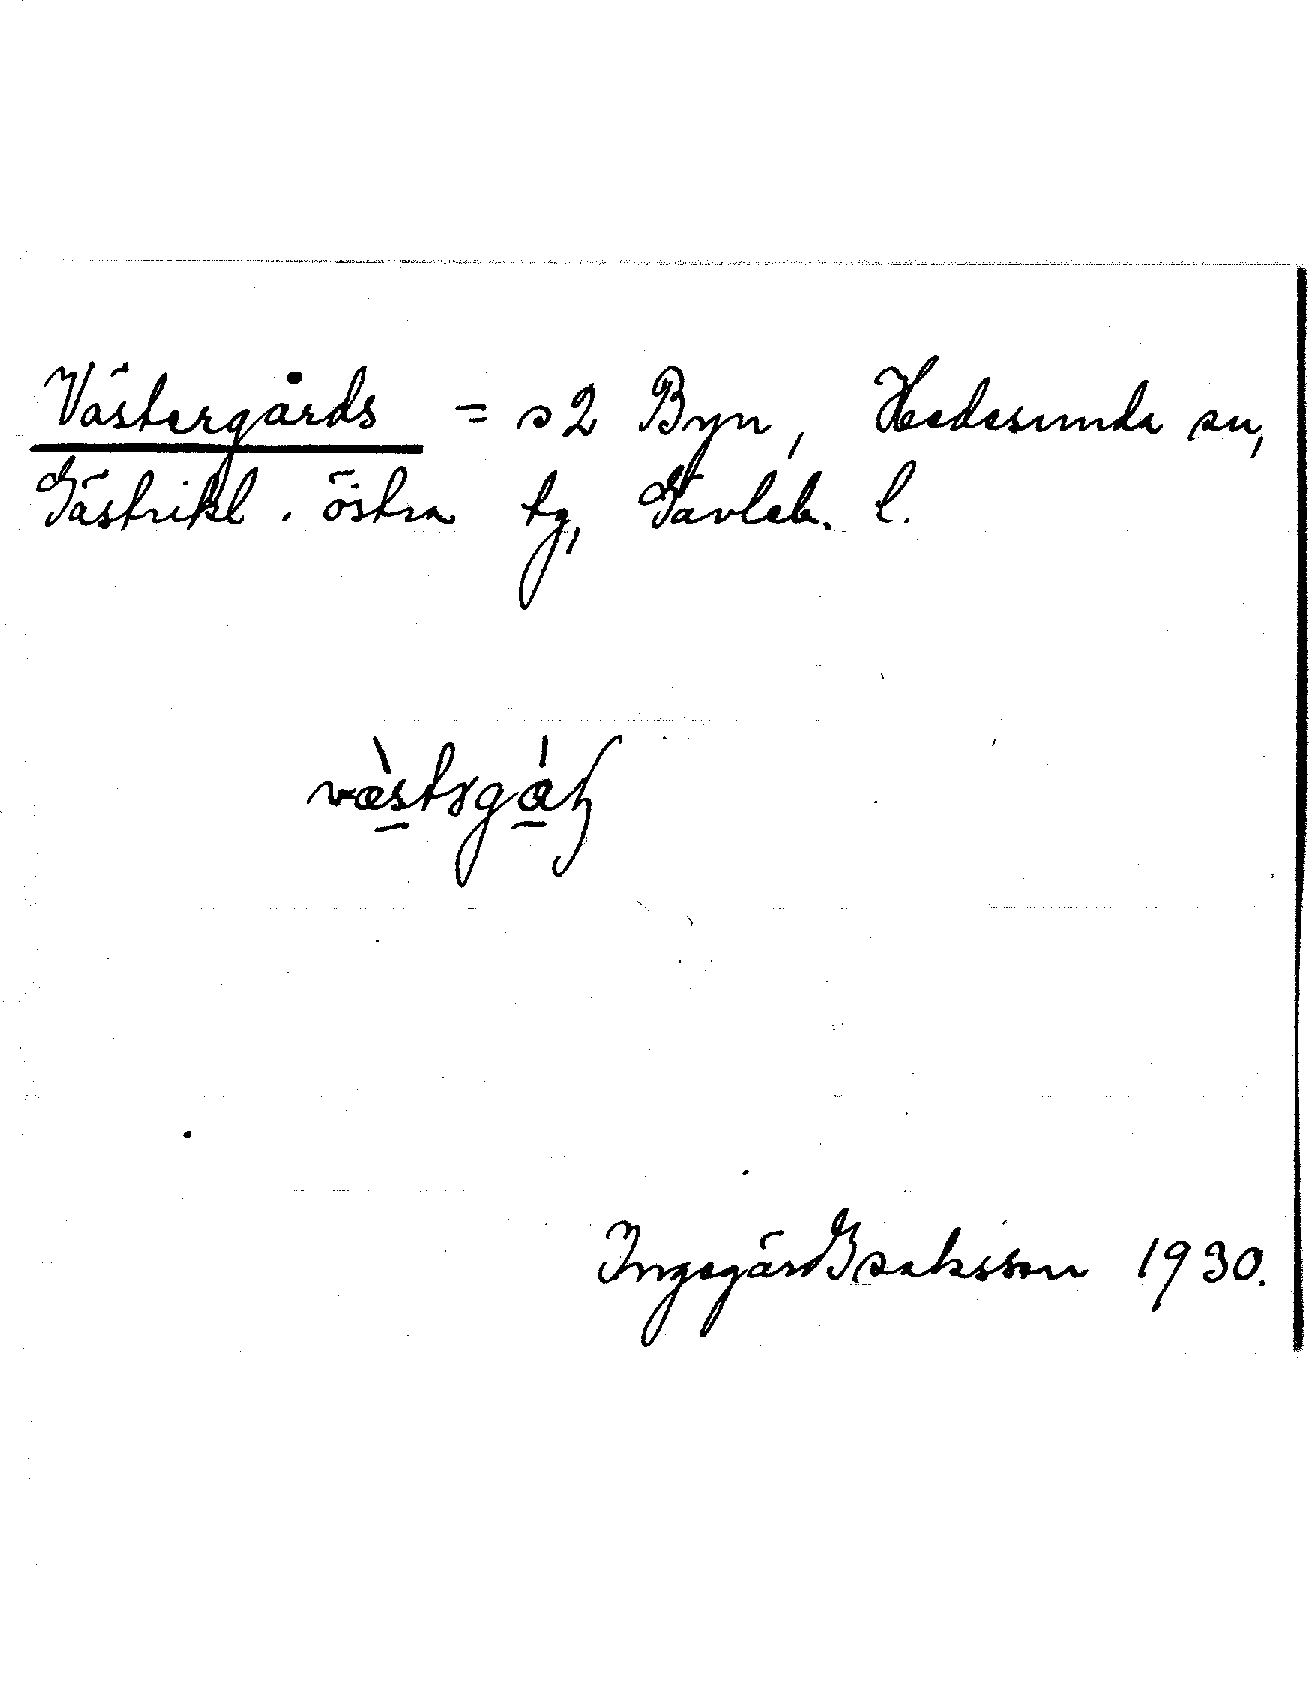 Västergårds = s2 Byn, Hedesunda sn,
Gästrikl. östra tg, Gävleb. l.
Ingegärd Isaksson 1930.